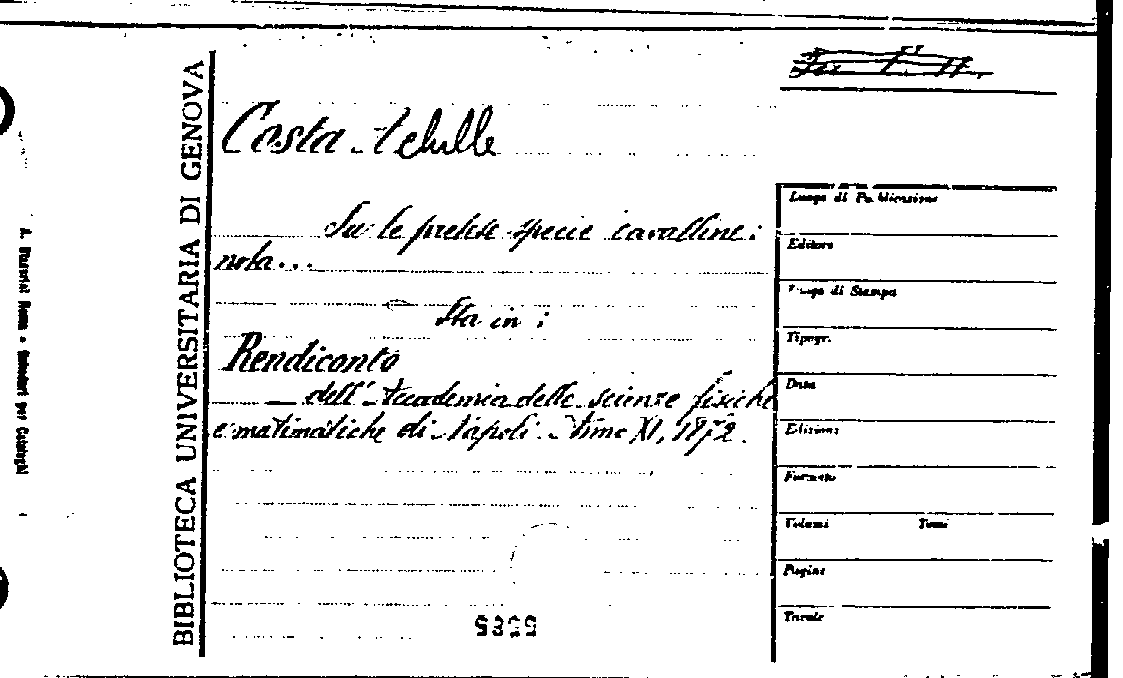 BIBLIOTECA UNIVERSITARIA DI GENOVA
Costa Achille
Su le pretese specie cavalline:
nota...
Sta in:
Rendiconto
dell'Accademia delle scienze fisiche
e matimatiche di Napoli. Anno XI, 1872.
Luogo di Pubblicazione
Editore
Luogo di Stampa
Tipogr.
Data
Edizione
Formato
Volumi Tomi
Pagine
Tavole